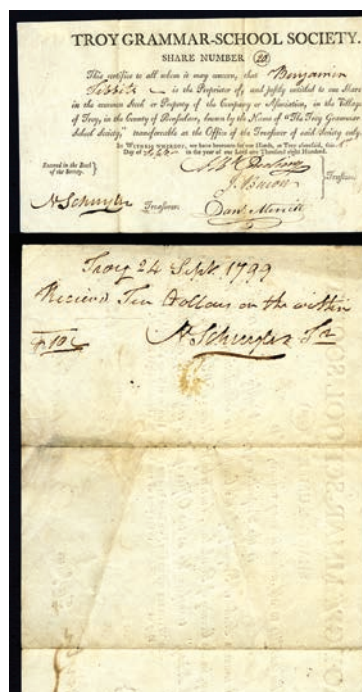 TROY GRAMMAR-SCHOOL SOCIETY.
SHARE NUMBER 20
This certifies to all whom it may concern, that Benjamin
Tibbits is the Proprietor of, and justly entitled to one Share
in the common Stock or Property of the Company or Association, in the Village
of Troy, in the County of Rensselaer, known by the Name of "The Troy Grammar
School Society," transferrable at the Office of the Treasurer of said Society only.
IN WITNESS WHEREOF, we have hereunto set our Hands, at Troy aforesaid, this
Day of in the year of our Lord one Thousand eight Hundred.
Entered in the Book
of the Society.
N Schuyler Treasurer.
Danl. Merritt
Trustees
Troy 24 Sept. 1799
Recievd Ten Dollars on the within
$10
N Schuyler Tr